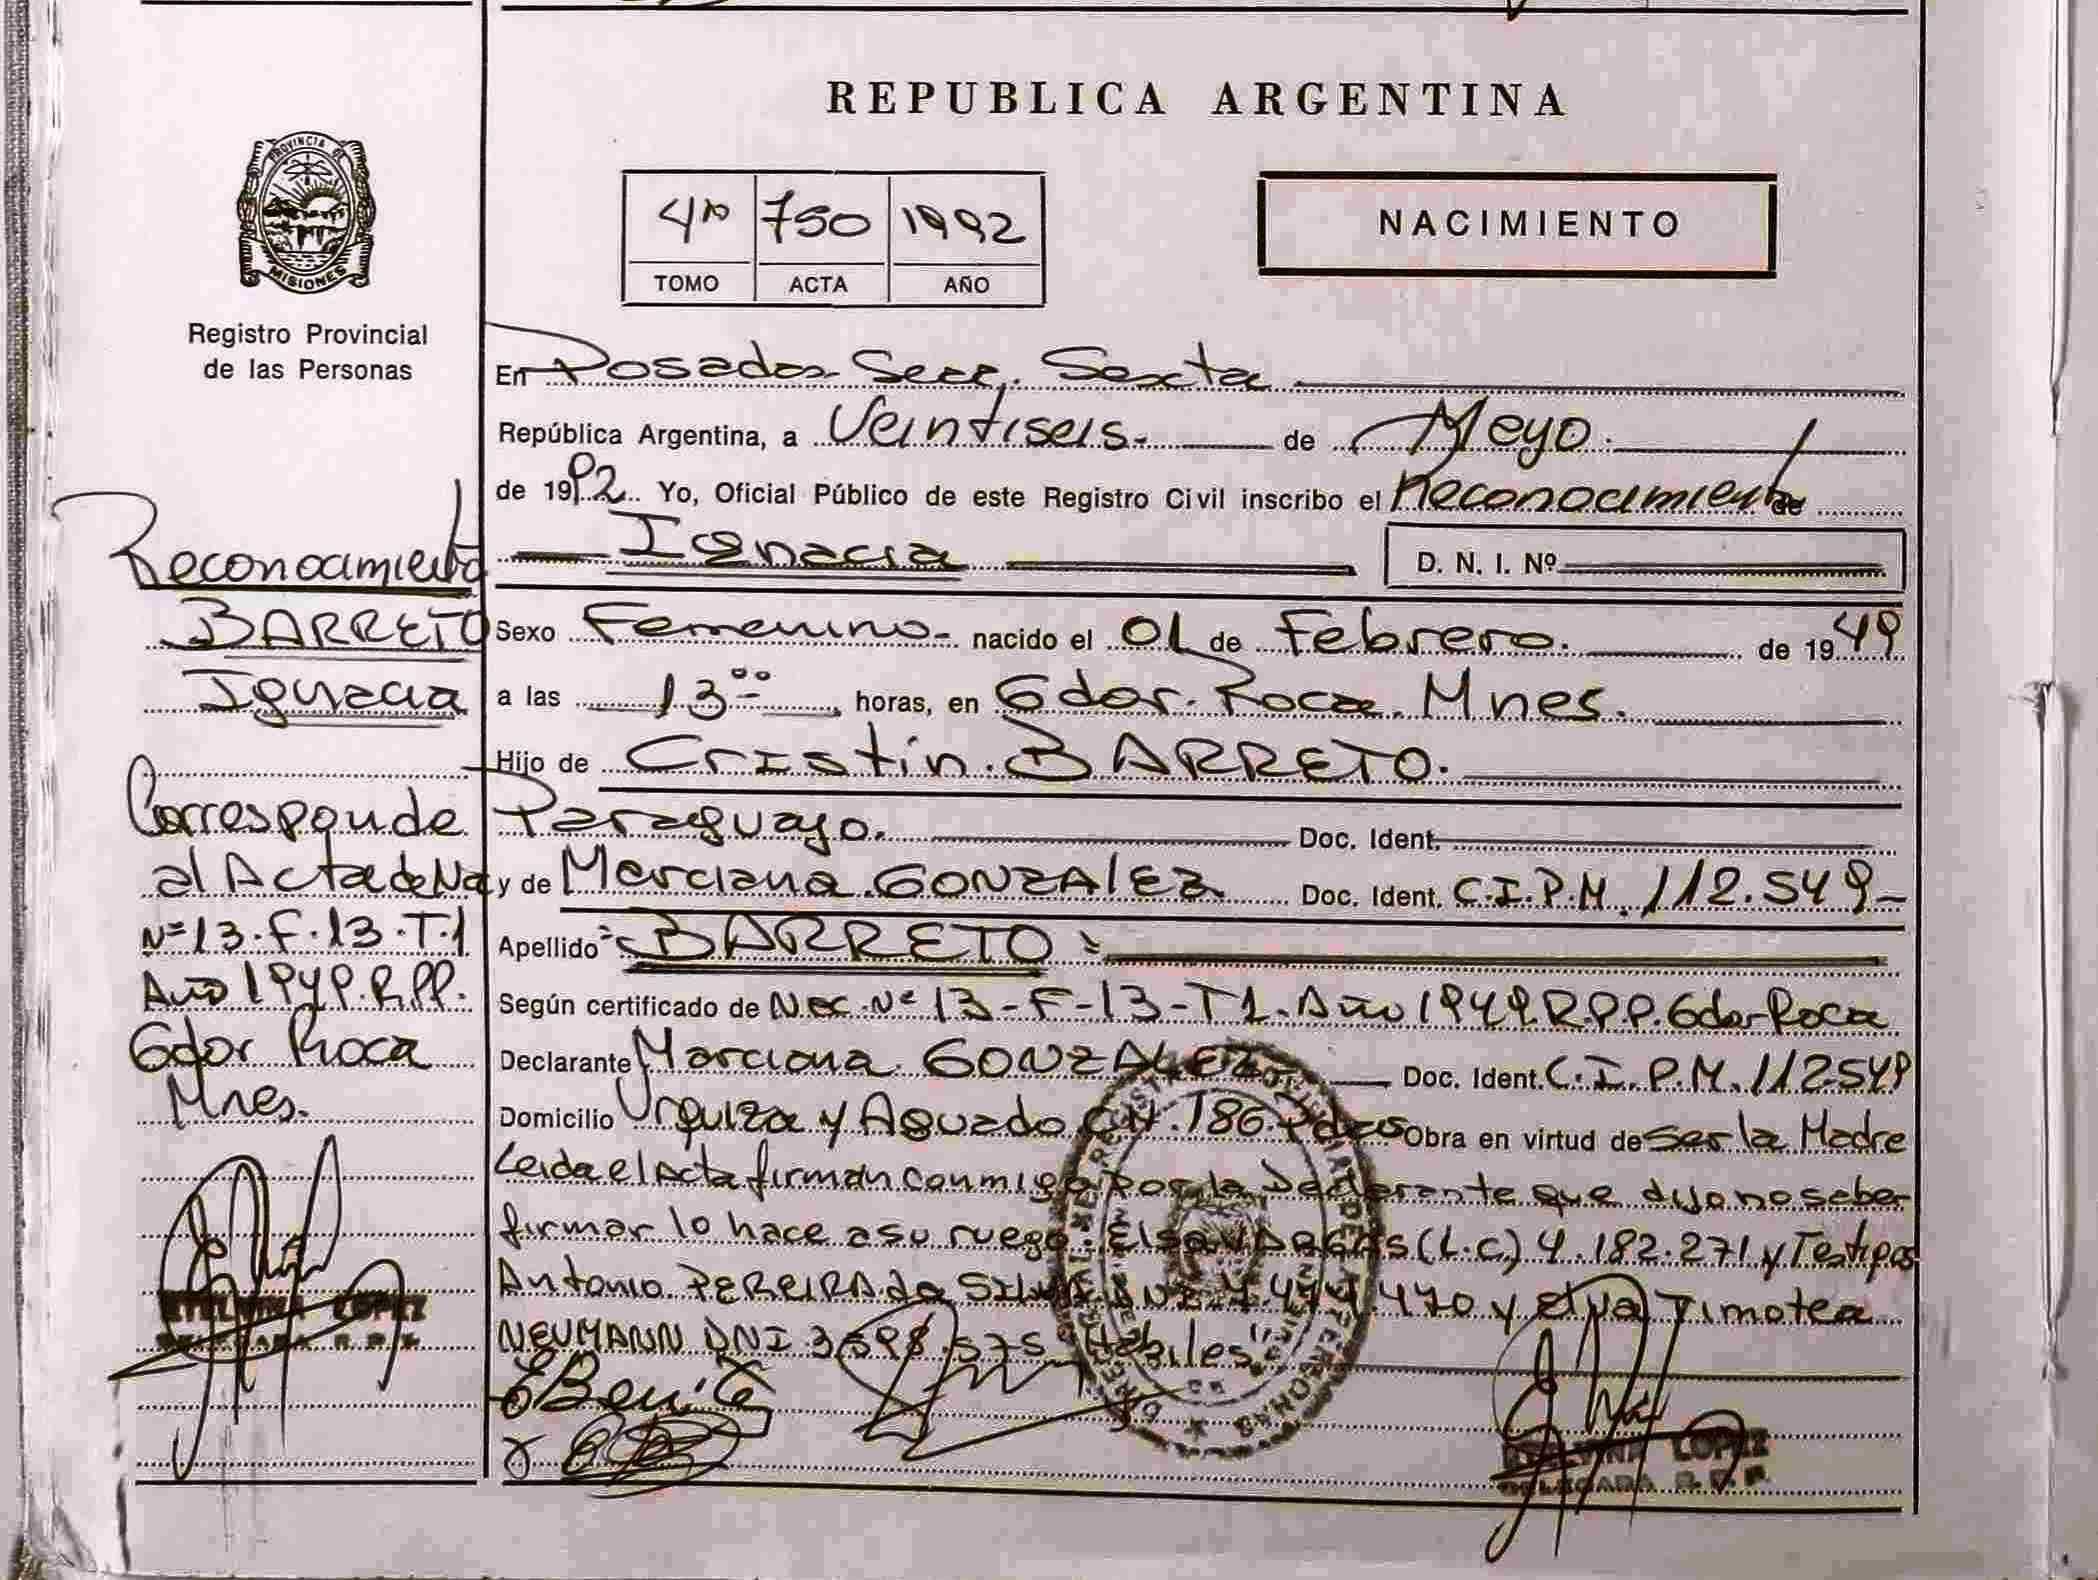 REPUBLICA ARGENTINA
PROVINCIA DE
MISIONES
Registro Provincial
de las Personas
4to 750 1992
TOMO ACTA AÑO
NACIMIENTO
En Posadas Secc. Sexta
República Argentina, a Veintiseis de Mayo
de 1992 Yo, Oficial Público de este Registro Civil inscribo el Reconocimiento de
Ignacia D. N. I. Nº
Sexo Femenino nacido el 01 de Febrero de 1949
a las 13 00 horas, en Gdor. Roca. Mnes.
Hijo de Cristin BARRETO.
Paraguayo. Doc. Ident.
y de Marciana GONZALEZ Doc. Ident. C.I.P.M. 112.549
Apellido BARRETO
Según certificado de Nac. Nº 13-F-13-T1. Año 1949 R.P.P. Gdor Roca
Declarante Marciana GONZALEZ Doc. Ident. C.I.P.M. 112549
Domicilio Urquiza y Aguado CH. 186 Pdas Obra en virtud de ser la Madre
Leida el Acta firman conmigo por la Declarante que dijo no saber
firmar lo hace a su ruego: Elsa VARGAS (L.C.) 4.182.271 y Testigos
Antonio PEREIRA da SILVA DNI 7.477.470 y Elva Timotea
NEUMANN DNI 3.598.575 Habiles
E Benitez
ETELVINA LOPEZ
DELEGADA R.P.P.
Reconocimiento
BARRETO
Ignacia
Corresponde
al Acta de Nac
Nº 13-F-13-T.1
Año 1949. R.P.P.
Gdor Roca
Mnes.
ETELVINA LOPEZ
DELEGADA R.P.P.